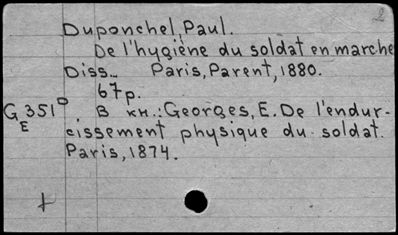 2
Duponchel, Paul.
De l'hygiène du soldat en marche
Diss... Paris, Parent, 1880.
67p.
G 351° В кн.: Georges, E. De l'endur-
E
cissement physique du soldat.
Paris, 1874.
+